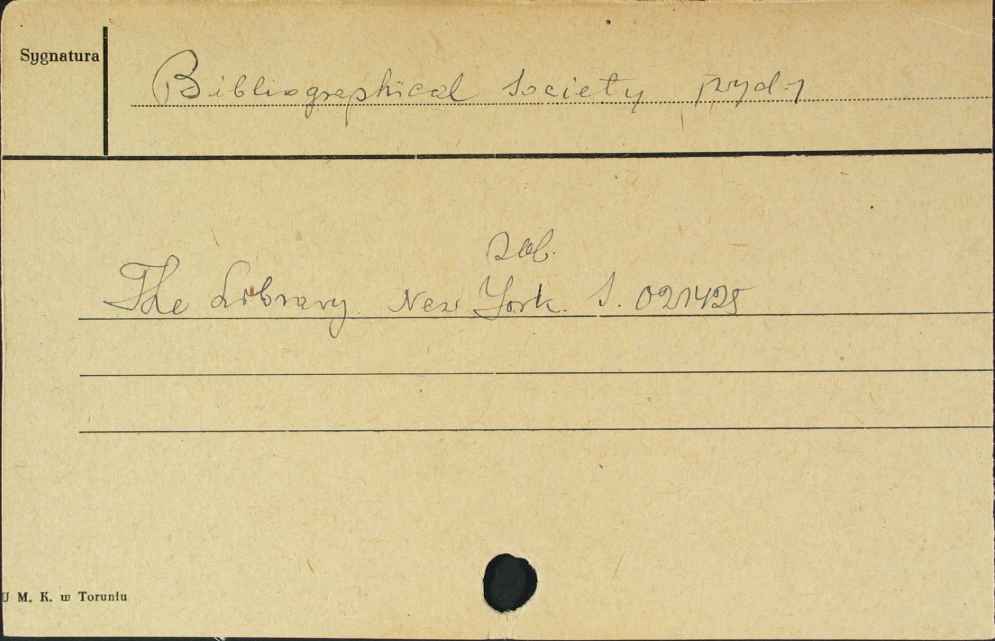 Sygnatura
Bibliographical Society
zob.
The Library New York. S. 021425
U M. K. w Toruniu